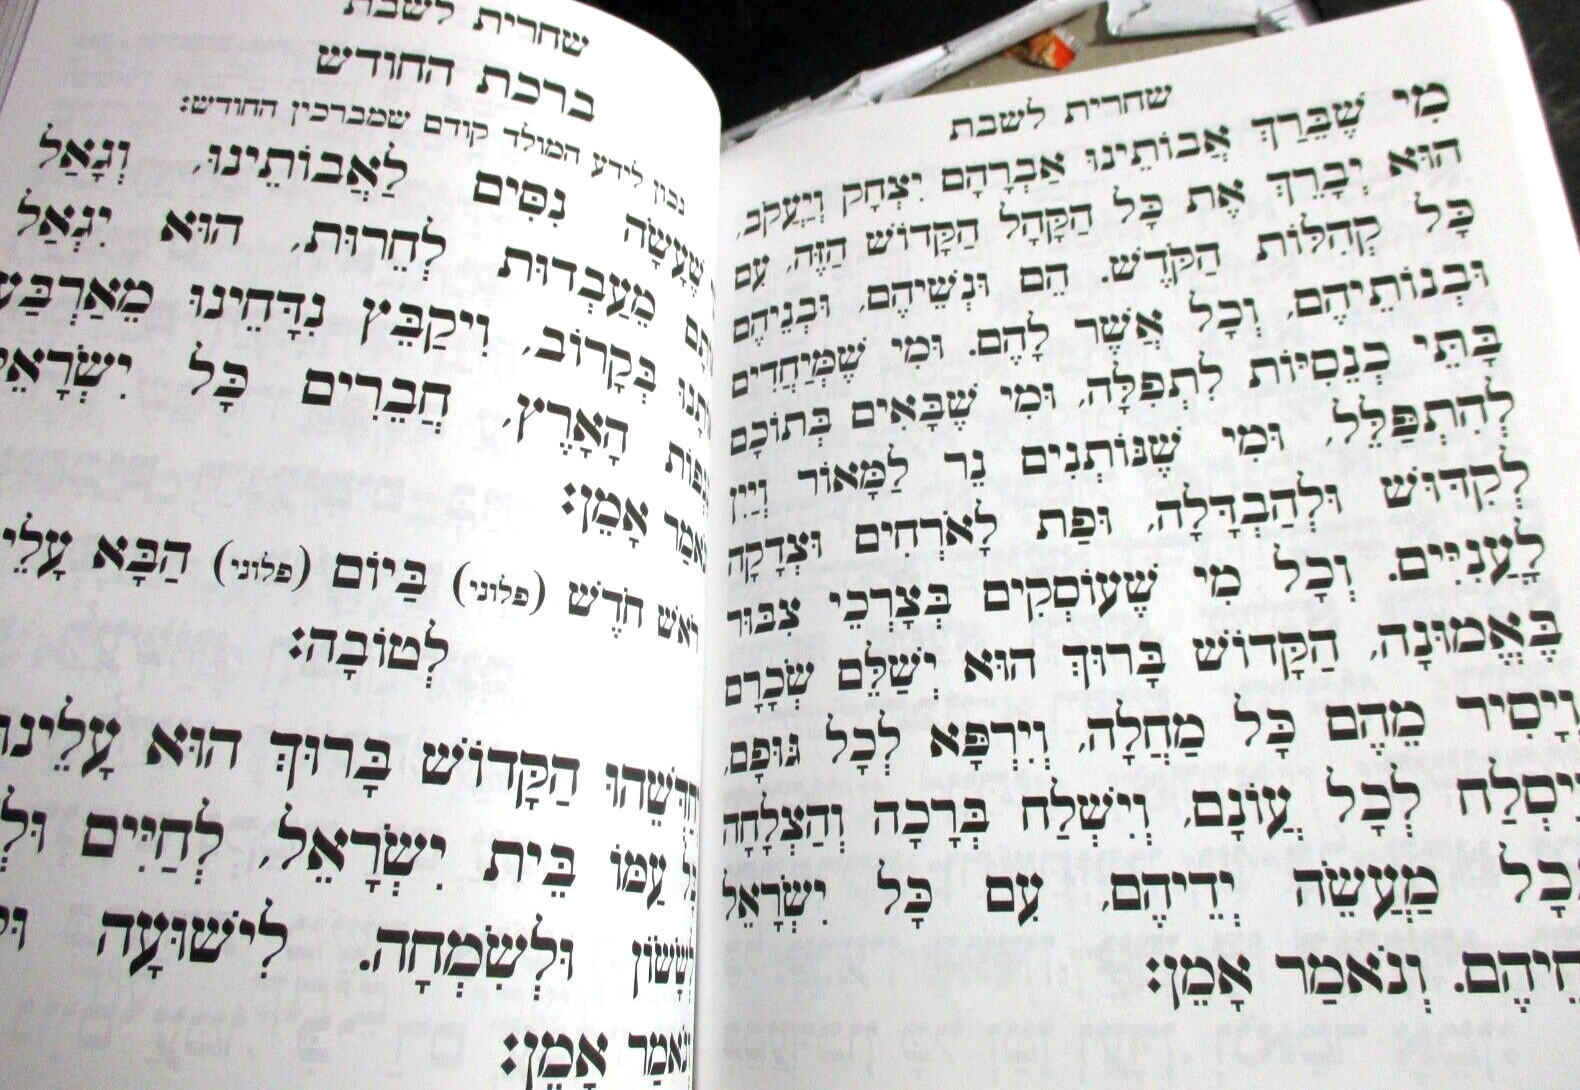 שחרית לשבת
מִי שֶׁבֵּרַךְ אֲבוֹתֵינוּ אַבְרָהָם יִצְחָק וְיַעֲקֹב,
הוּא יְבָרֵךְ אֶת כָּל הַקָּהָל הַקָּדוֹשׁ הַזֶּה, עִם
כָּל קְהִלּוֹת הַקֹּדֶשׁ. הֵם וּנְשֵׁיהֶם, וּבְנֵיהֶם
וּבְנוֹתֵיהֶם, וְכָל אֲשֶׁר לָהֶם. וּמִי שֶׁמְּיַחֲדִים
בָּתֵּי כְנֵסִיּוֹת לִתְפִלָּה, וּמִי שֶׁבָּאִים בְּתוֹכָם
לְהִתְפַּלֵּל, וּמִי שֶׁנּוֹתְנִים נֵר לַמָּאוֹר וְיַיִן
לְקִדּוּשׁ וּלְהַבְדָּלָה, וּפַת לָאֹרְחִים וּצְדָקָה
לָעֲנִיִּים. וְכָל מִי שֶׁעוֹסְקִים בְּצָרְכֵי צִבּוּר
בֶּאֱמוּנָה, הַקָּדוֹשׁ בָּרוּךְ הוּא יְשַׁלֵּם שְׂכָרָם
וְיָסִיר מֵהֶם כָּל מַחֲלָה, וְיִרְפָּא לְכָל גּוּפָם,
יִסְלַח לְכָל עֲוֹנָם, וְיִשְׁלַח בְּרָכָה וְהַצְלָחָה
כָל מַעֲשֵׂה יְדֵיהֶם, עִם כָּל יִשְׂרָאֵל
חֵיהֶם. וְנֹאמַר אָמֵן:
שחרית לשבת
ברכת החודש
נכון לידע המולד קודם שמברכין החודש:
שֶׁעָשָׂה נִסִּים לַאֲבוֹתֵינוּ, וְגָאַל
תָם מֵעַבְדוּת לְחֵרוּת, הוּא יִגְאַל
תָנוּ בְּקָרוֹב, וִיקַבֵּץ נִדָּחֵינוּ מֵאַרְבַּע
נְפוֹת הָאָרֶץ, חֲבֵרִים כָּל יִשְׂרָאֵל
נֹאמַר אָמֵן:
רֹאשׁ חֹדֶשׁ (פלוני) בַּיוֹם (פלוני) הַבָּא עָלֵי
לְטוֹבָה:
חַדְּשֵׁהוּ הַקָּדוֹשׁ בָּרוּךְ הוּא עָלֵינוּ
כָּל עַמּוֹ בֵּית יִשְׂרָאֵל, לְחַיִּים וּלְ
לְשָׂשׂוֹן וּלְשִׂמְחָה. לִישׁוּעָה וּ
וְנֹאמַר אָמֵן: